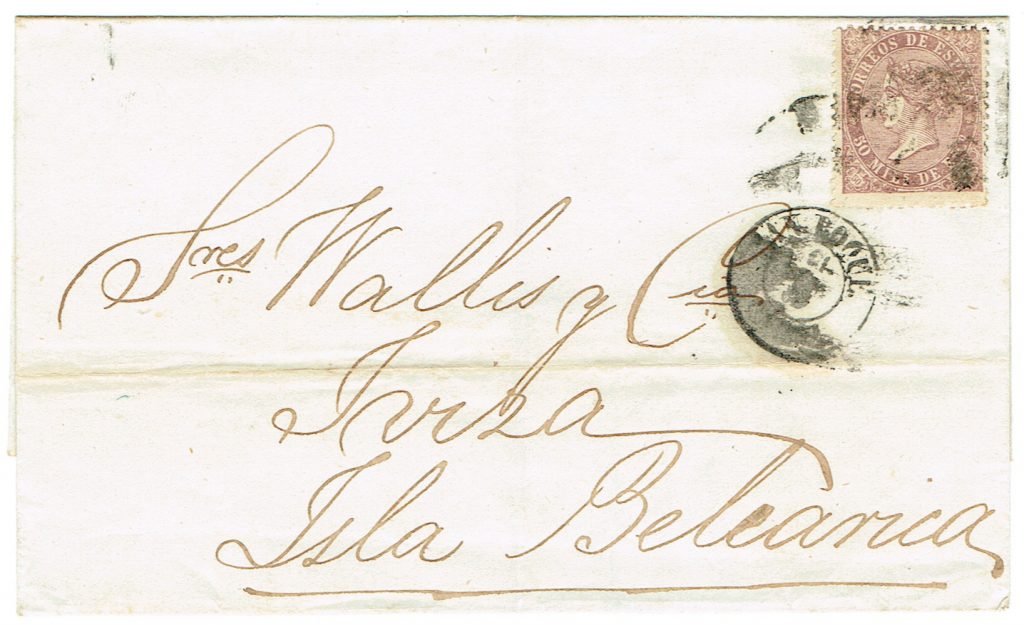 CORREOS DE ES
50 MILS DE
SAN ROQUE
Sres Wallis y Cia
Iviza
Isla Belearica